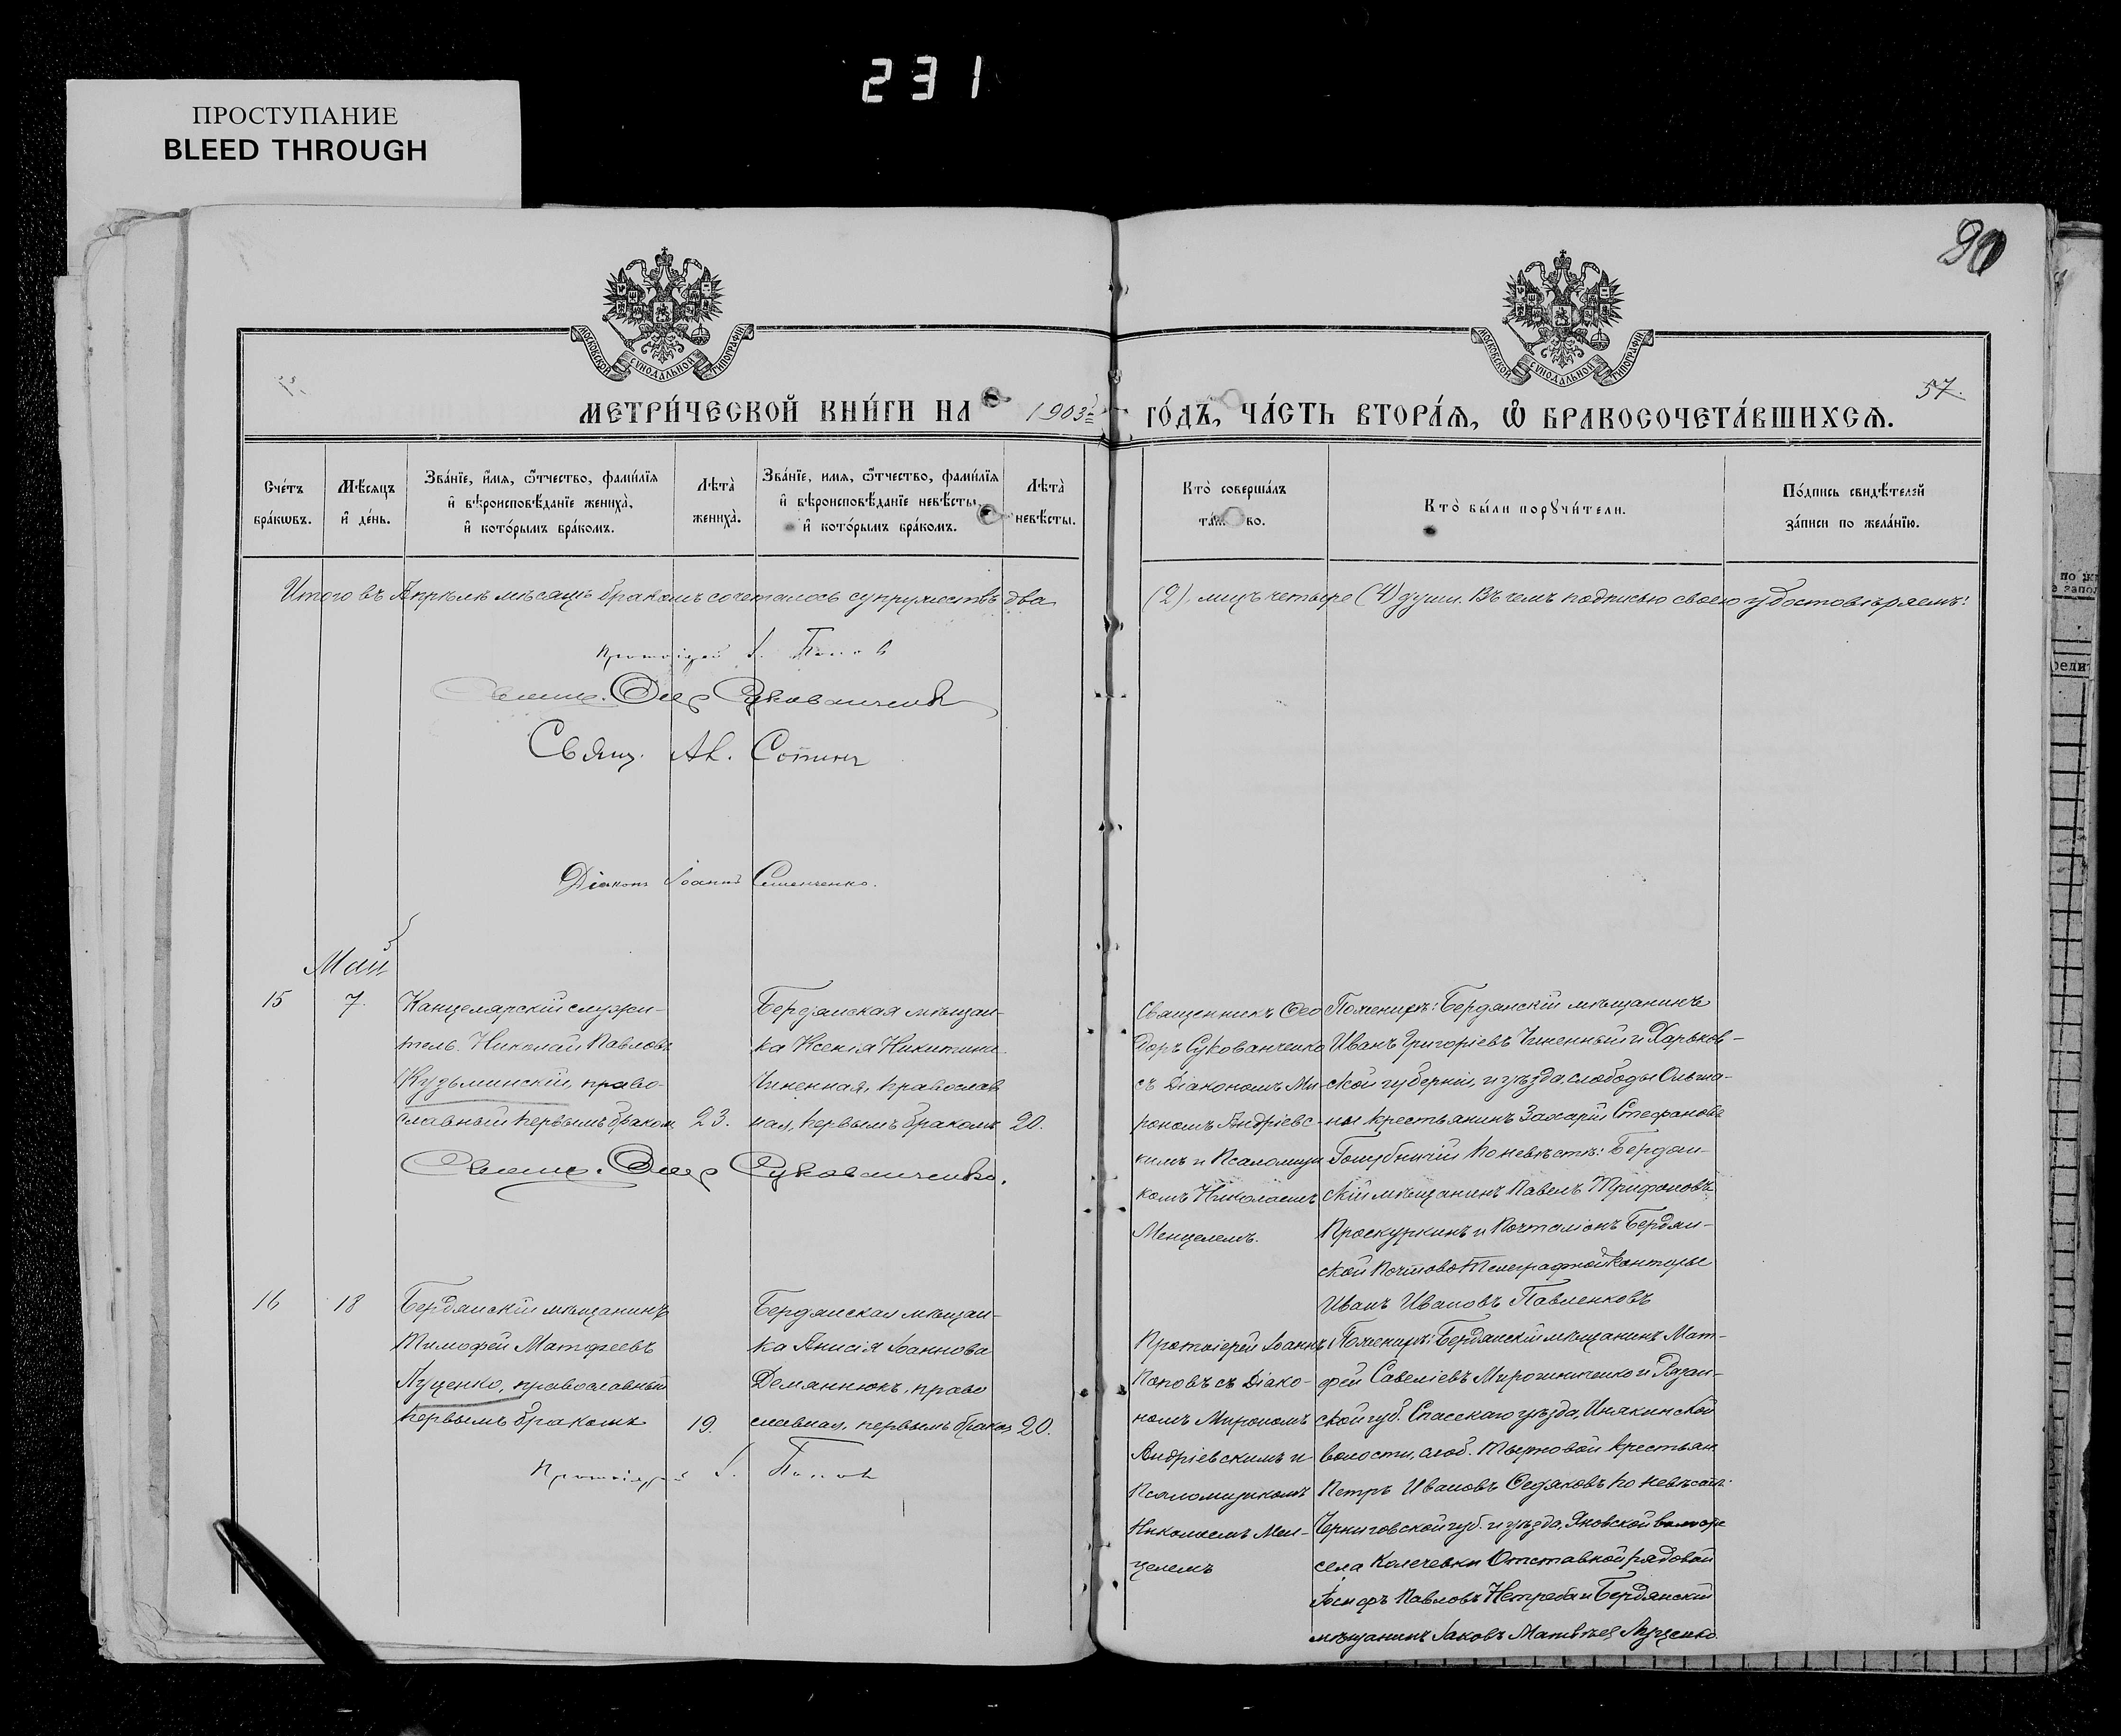 231
ПРОСТУПАНИЕ
BLEED THROUGH
90
МОСКОВСКОЙ СѴНОДАЛЬНОЙ ТИПОГРАФІИ
МОСКОВСКОЙ СѴНОДАЛЬНОЙ ТИПОГРАФІИ
57.
МЕТРИ́ЧЕСКОЙ КНИ́ГИ НА 1903 ГО́ДЪ, ЧА́СТЬ ВТОРА́Я, Ѽ БРАКОСОЧЕТА́ВШИХСЯ.
Сче́тъ
бра́кѡвъ.
Мѣ́сяцъ
и҆ де́нь.
Зва́нїе, и҆́мя, ѻ҆́тчество, фами́лїя
и҆ вѣроисповѣ́данїе жениха̀,
и҆ кото́рымъ бра́комъ.
Лѣта̀
жениха̀.
Зва́нїе, имя, ѻ҆́тчество, фами́лїя
и҆ вѣроисповѣ́данїе невѣ́сты,
и҆ кото́рымъ бра́комъ.
Лѣта̀
невѣ́сты.
Кто̀ соверша́лъ
во.
Кто̀ бы́ли порꙋчи́тели.
По́дпись свидѣ́телей
за́писи по жела́нїю.
Итого въ Апрѣлѣ мѣсяцѣ бракомъ сочеталось супружествъ два (2), лицъ четыре (4) души. Въ чемъ подписью своею удостовѣряемъ:
Протоіерей І. Попов
Священ. Ѳеод Сукованченко
Свящ. Ал. Сотинъ
Діаконъ Іоаннъ Семенченко.
Май
15
7.
Канцелярскій служи-
тель Николай Павловъ
Кузьминскій, право-
славный первымъ браком
23.
Бердянская мѣщан-
ка Ксенія Никитина
Чиненная, православ
ная, первымъ бракомъ
20.
Священ. Ѳеод Сукованченко.
Священникъ Ѳео
доръ Сукованченко
съ Діакономъ Ми-
рономъ Андріевс-
кимъ и Псаломщи
комъ Николаемъ
Менцелемъ.
По женихѣ: Бердянскій мѣщанинъ
Иванъ Григоріевъ Чиненный и Харьков-
ской губерніи, и уѣзда, слободы Ольша-
ны крестьянин Захарій Стефановъ
Голубничій по невѣстѣ: Бердян-
скій мѣщанинъ Павелъ Трифоновъ
Проскуркинъ и Почталіонъ Бердян-
ской Почтово Телеграфной Конторы
Иванъ Ивановъ Павленковъ
16
18
Бердянскій мѣщанинъ
Тимофей Матфеевъ
Луценко, православный
первымъ бракомъ
19.
Бердянская мѣщан-
ка Анисія Іоаннова
Демяннюкъ, право
славная, первымъ браком
20.
Протоіерей І. Попов
Протоіерей Іоаннъ
Поповъ съ Діако-
номъ Мирономъ
Андріевскимъ и
Псаломщикомъ
Николаемъ Мен-
целемъ
По женихѣ: Бердянскій мѣщанинъ Мат-
фей Савеліевъ Мирошниченко и Рязан-
ской губ. Спасскаго уѣзда, Инякинской
волости, слоб. Терновой крестьян
Петръ Ивановъ Сѣдяковъ по невѣстѣ:
Черниговской губ. и уѣзда, Яновской волости
села Колечевки Отставной рядовой
Іосифъ Павловъ Нетреба и Бердянскій
мѣщанинъ Іаковъ Матвѣев Луценко.